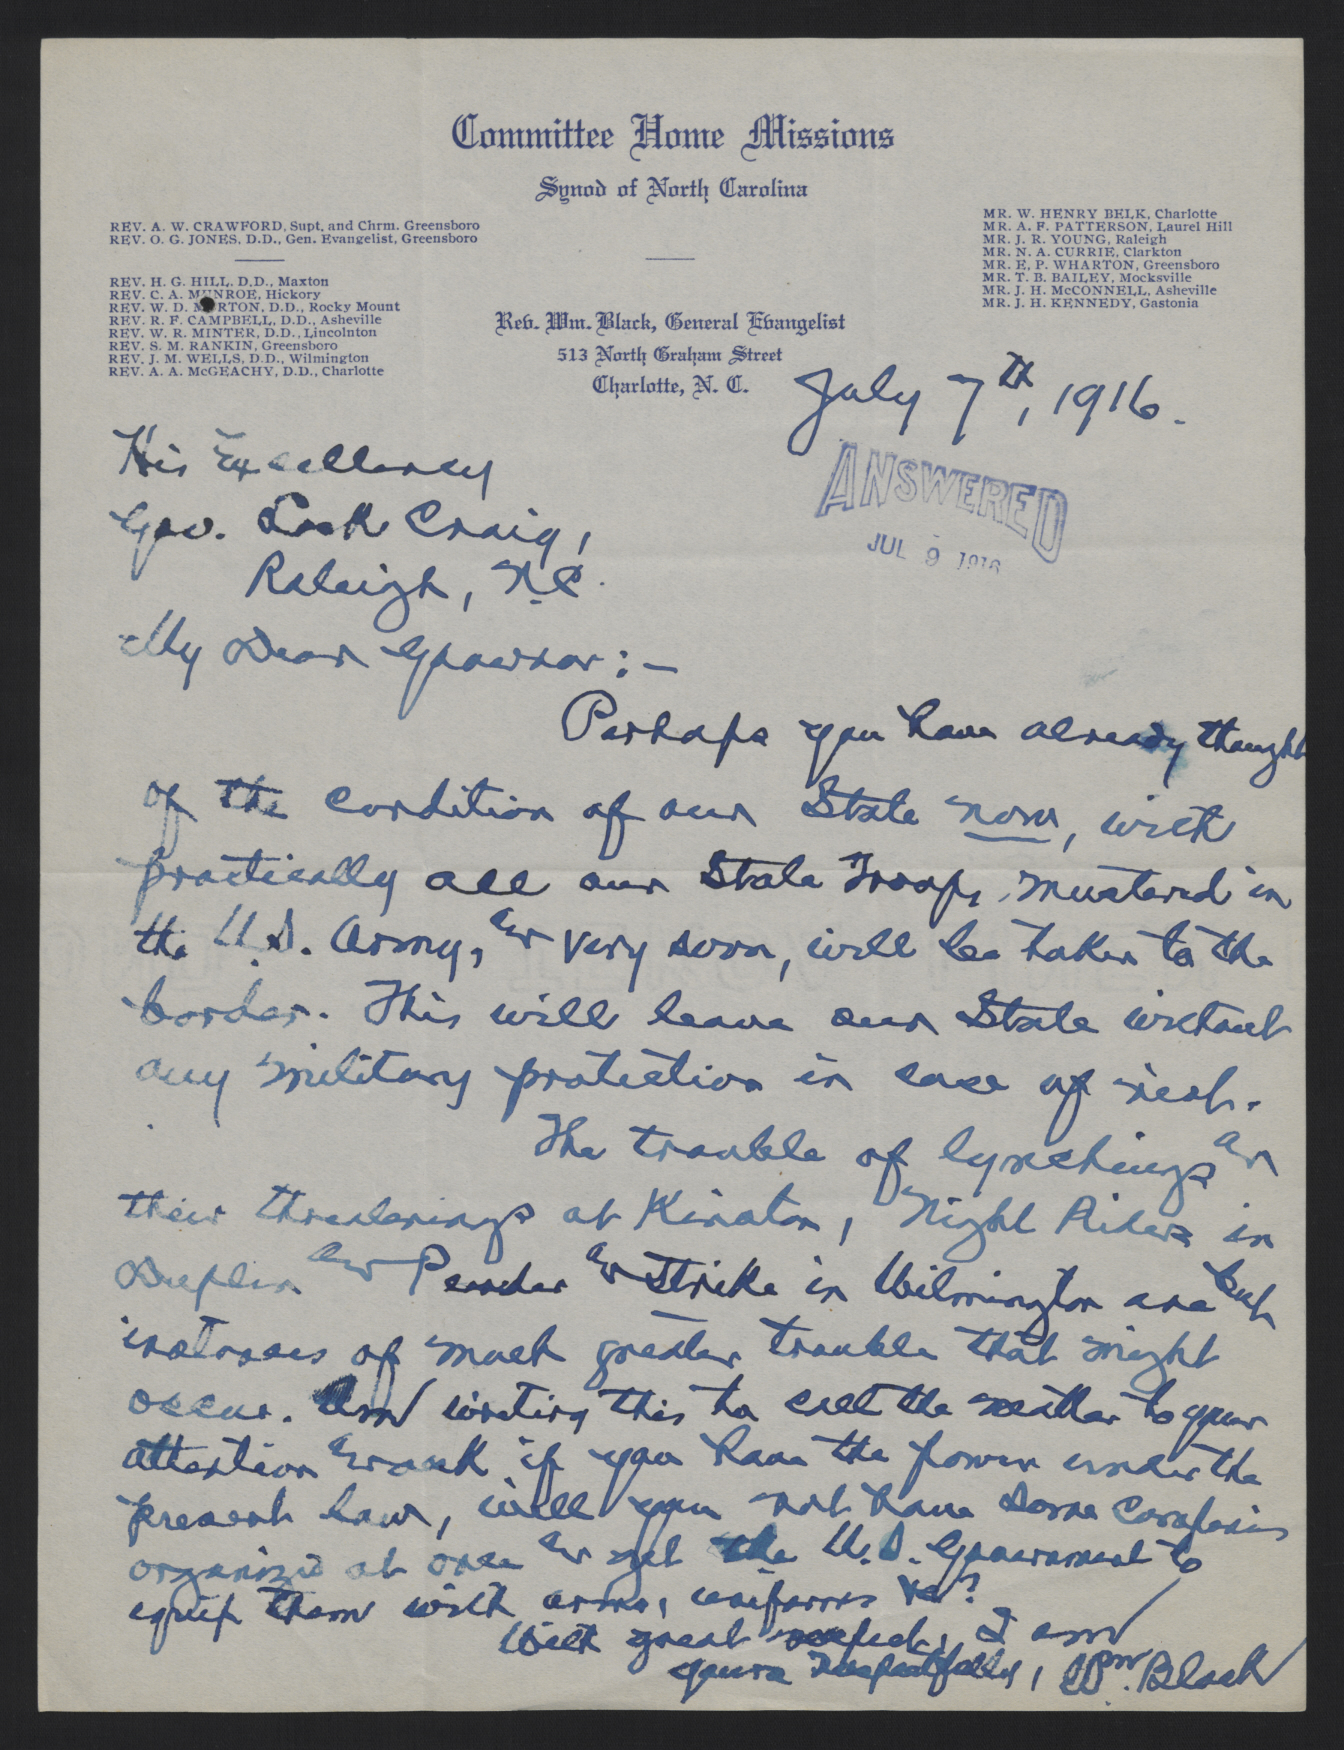 Committee Home Missions
Synod of North Carolina
REV. A. W. CRAWFORD, Supt. and Chrm. Greensboro
REV. O. G. JONES, D.D., Gen. Evangelist, Greensboro
REV. H. G. HILL, D.D., Maxton
REV. C. A. MUNROE, Hickory
REV. W. D. MORTON, D.D., Rocky Mount
REV. R. F. CAMPBELL, D.D., Asheville
REV. W. R. MINTER, D.D., Lincolnton
REV. S. M. RANKIN, Greensboro
REV. J. M. WELLS, D.D., Wilmington
REV. A. A. McGEACHY, D.D., Charlotte
MR. W. HENRY BELK, Charlotte
MR. A. F. PATTERSON, Laurel Hill
MR. J. R. YOUNG, Raleigh
MR. N. A. CURRIE, Clarkton
MR. E. P. WHARTON, Greensboro
MR. T. B. BAILEY, Mocksville
MR. J. H. McCONNELL, Asheville
MR. J. H. KENNEDY, Gastonia
Rev. Wm. Black, General Evangelist
513 North Graham Street
Charlotte, N. C.
July 7th, 1916.
ANSWERED
JUL 9 1916
His Excellency
Gov. Lock Craig,
Raleigh, N.C.
My Dear Governor:-
Perhaps you have already thought
of the condition of our State now, with
practically all our State Troops, mustered in
the U.S. Army, & very soon, will be taken to the
border. This will leave our State without
any military protection in case of need.
The trouble of lynchings &
their threatenings at Kinston, Night Riders in
Duplin & Pender & Strike in Wilmington are but
instances of much greater trouble that might
occur. Am writing this to call the matter to your
attention & ask if you have the power under the
present law, will you not have some Companies
organized at once & get the U.S. Government to
equip them with arms, uniforms &c?
With great respect, I am
yours respectfully, Wm. Black